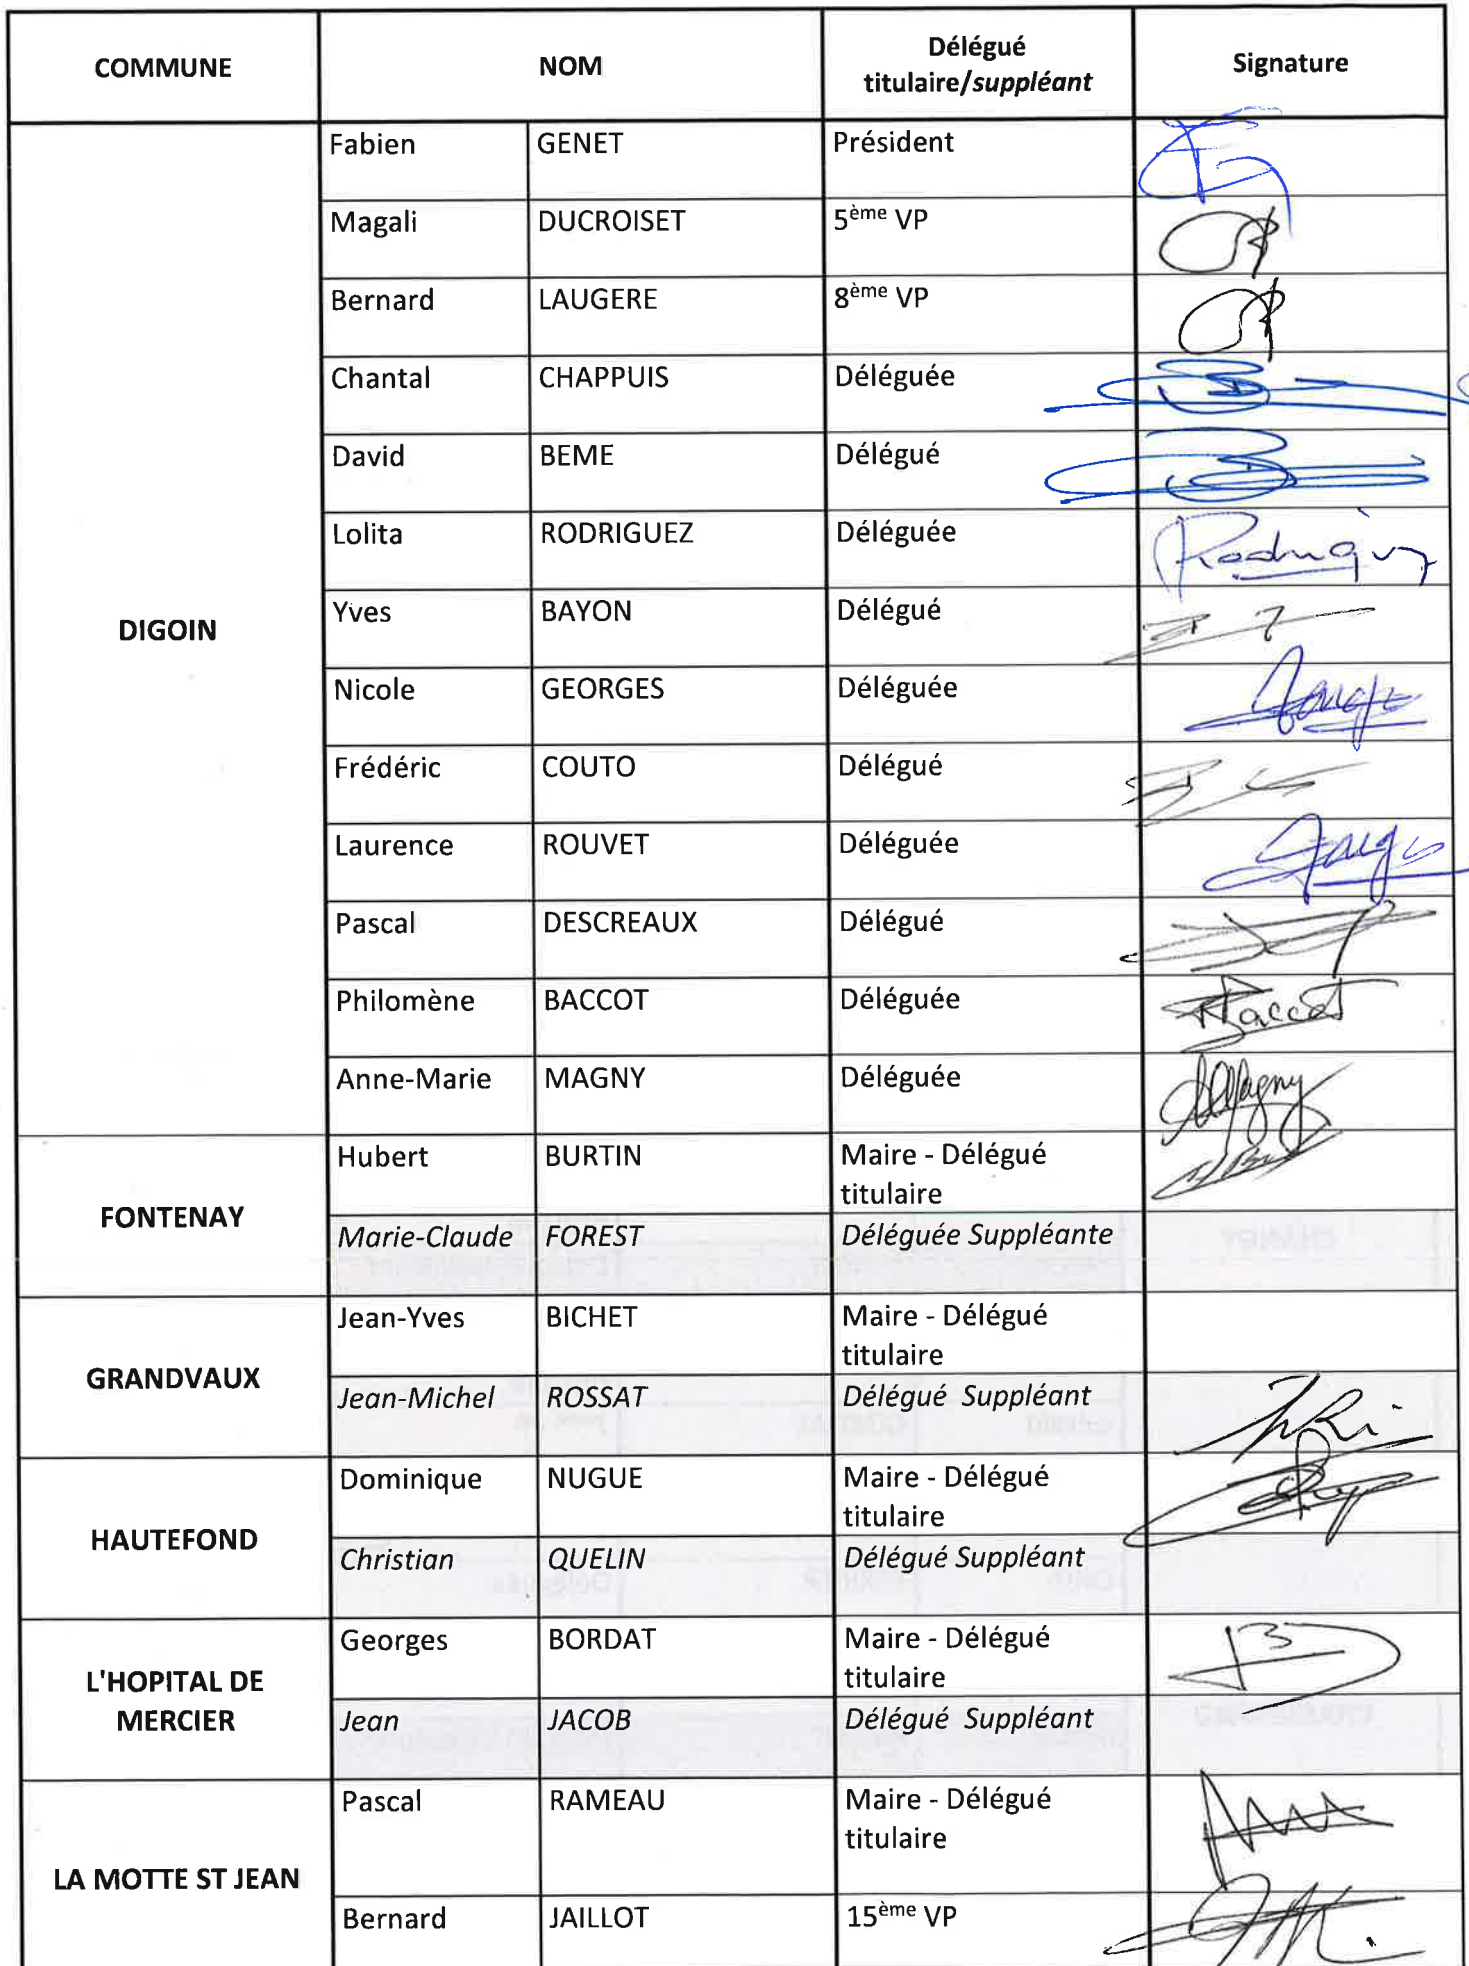 COMMUNE NOM Délégué titulaire/suppléant Signature
DIGOIN
Fabien GENET Président
Magali DUCROISET 5ème VP
Bernard LAUGERE 8ème VP
Chantal CHAPPUIS Déléguée
David BEME Délégué
Lolita RODRIGUEZ Déléguée Rodriguez
Yves BAYON Délégué
Nicole GEORGES Déléguée
Frédéric COUTO Délégué
Laurence ROUVET Déléguée
Pascal DESCREAUX Délégué
Philomène BACCOT Déléguée Baccot
Anne-Marie MAGNY Déléguée AMagny
FONTENAY
Hubert BURTIN Maire - Délégué titulaire
Marie-Claude FOREST Déléguée Suppléante
GRANDVAUX
Jean-Yves BICHET Maire - Délégué titulaire
Jean-Michel ROSSAT Délégué Suppléant
HAUTEFOND
Dominique NUGUE Maire - Délégué titulaire
Christian QUELIN Délégué Suppléant
L'HOPITAL DE MERCIER
Georges BORDAT Maire - Délégué titulaire
Jean JACOB Délégué Suppléant
LA MOTTE ST JEAN
Pascal RAMEAU Maire - Délégué titulaire
Bernard JAILLOT 15ème VP